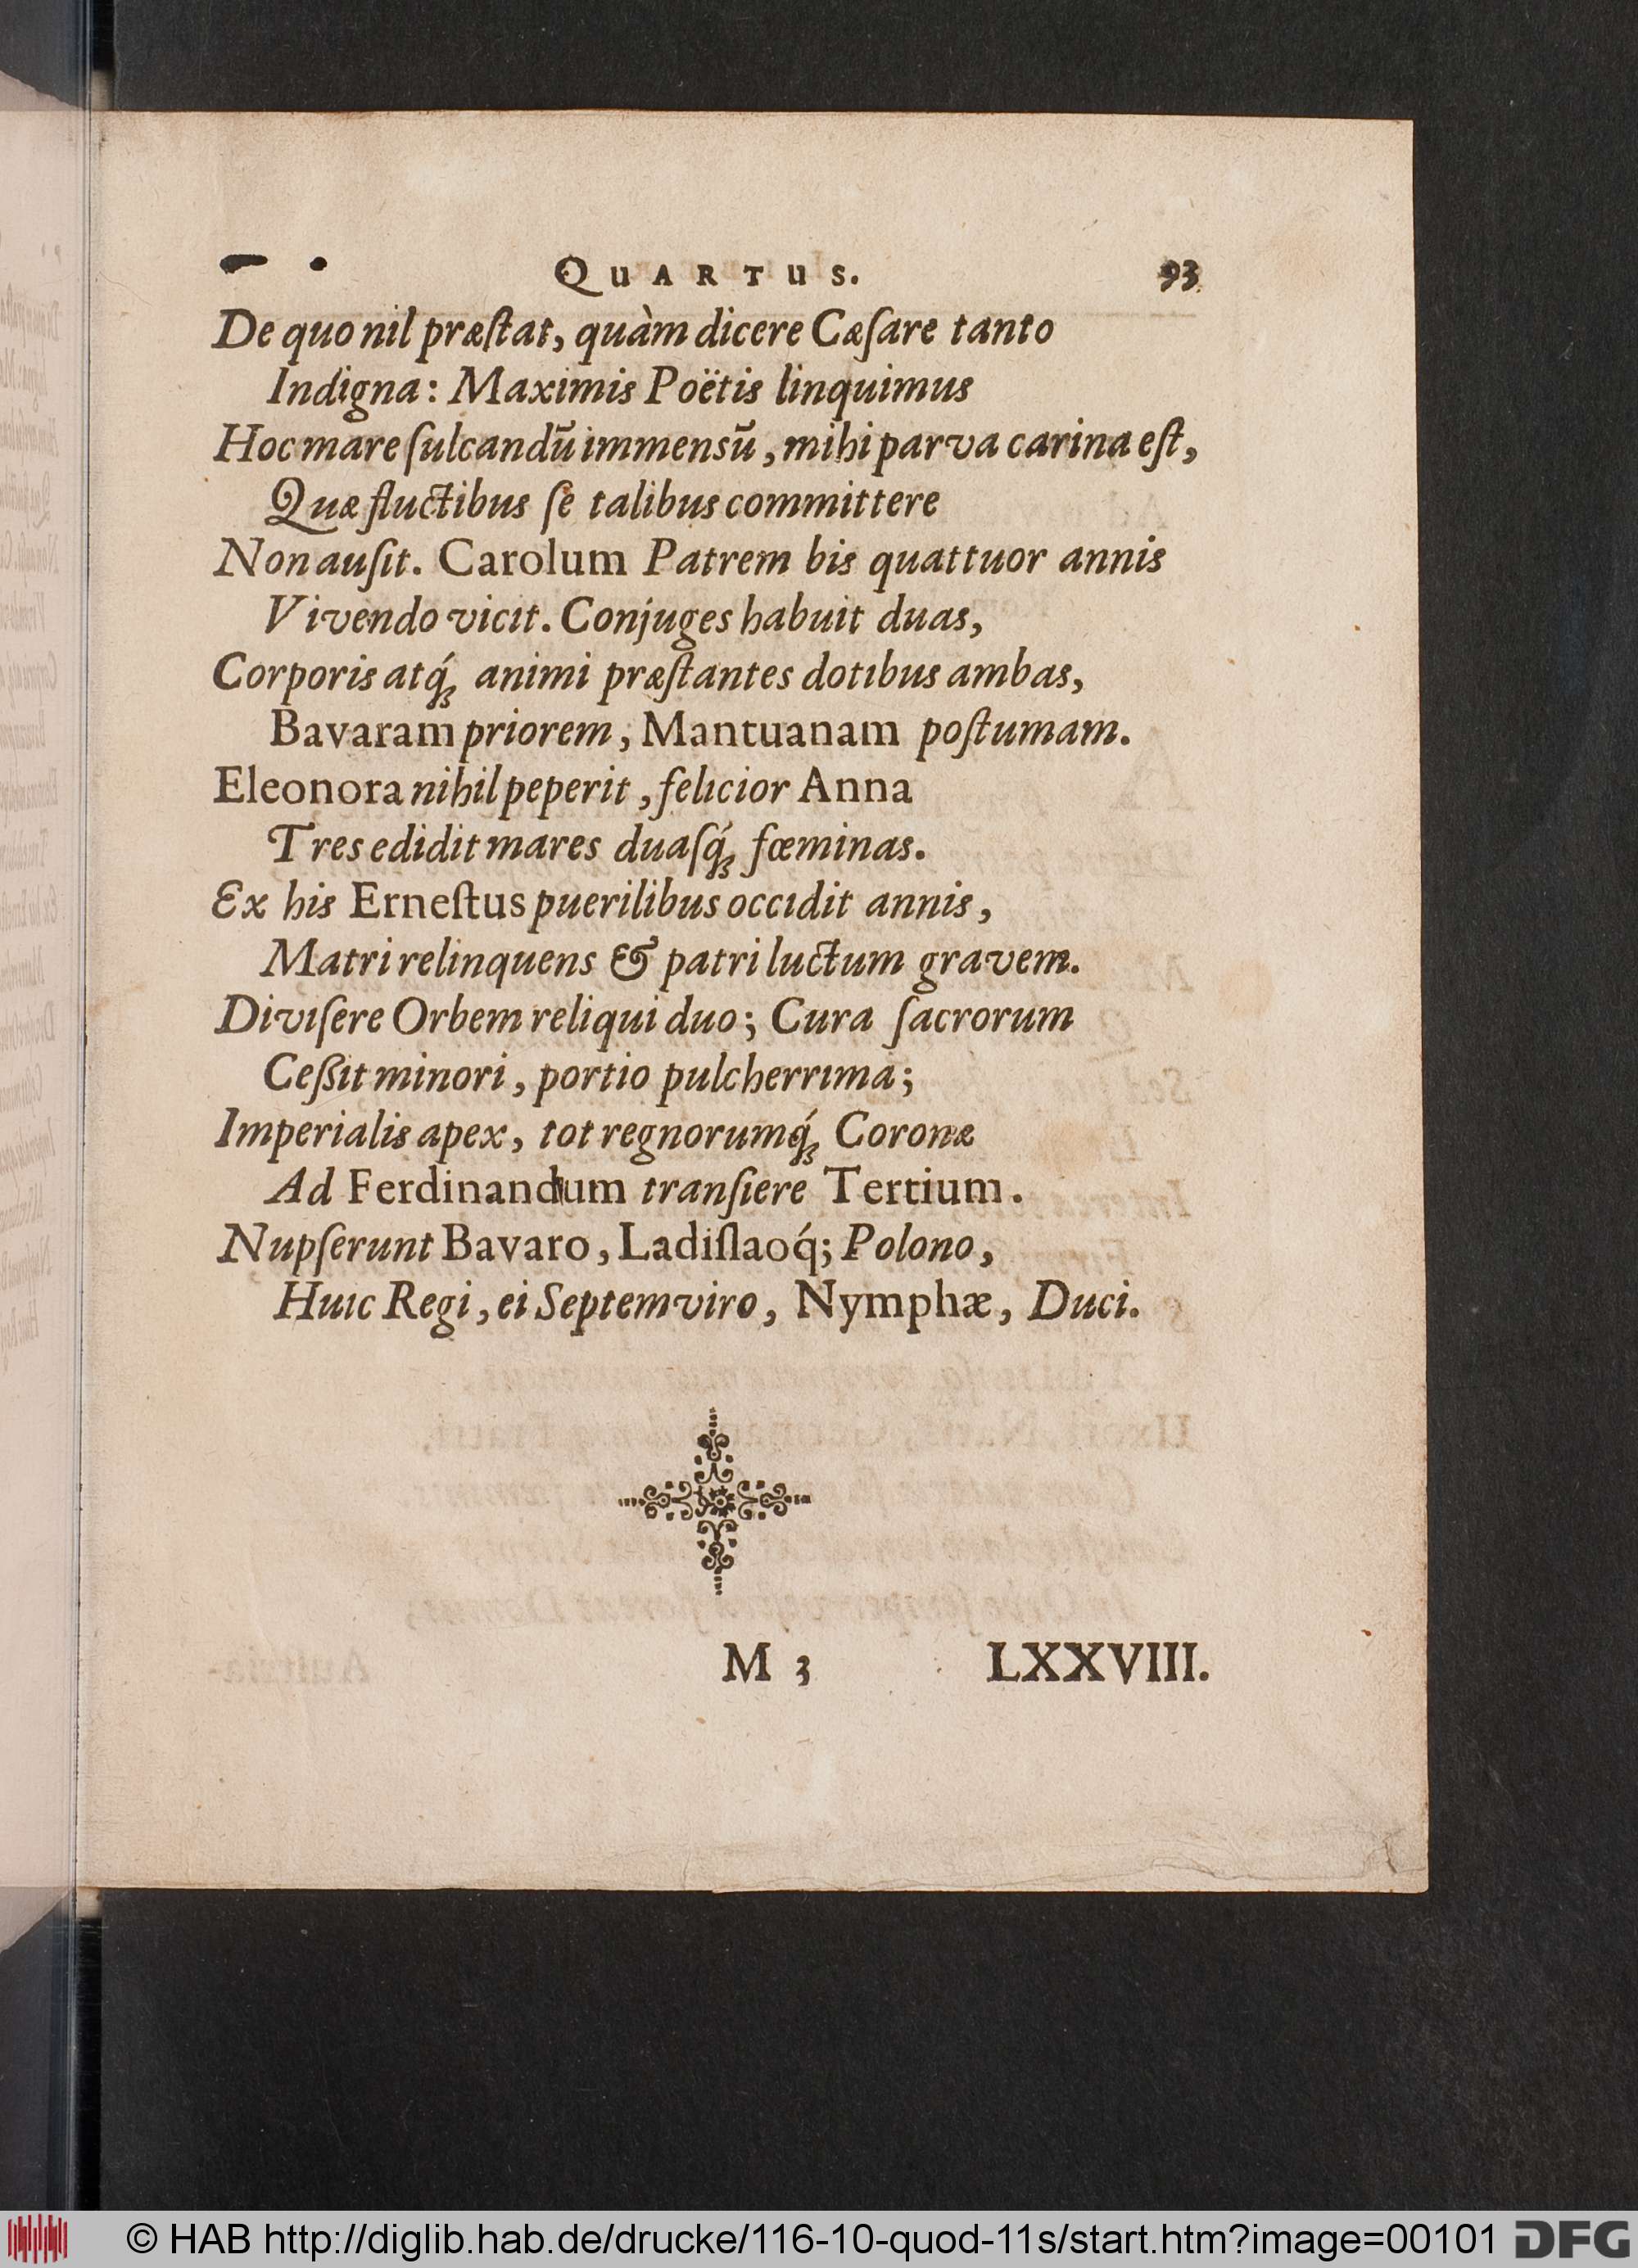 QUARTUS. 93
De quo nil præſtat, quàm dicere Cæſare tanto
Indigna: Maximis Poëtis linquimus
Hoc mare ſulcandū immensū, mihi parva carina eſt,
Quæ fluctibus ſe talibus committere
Non auſit. Carolum Patrem bis quattuor annis
Vivendo vicit. Conjuges habuit duas,
Corporis atq́ꝫ animi præſtantes dotibus ambas,
Bavaram priorem, Mantuanam poſtumam.
Eleonora nihil peperit, felicior Anna
Tres edidit mares duaſq́ꝫ fœminas.
Ex his Erneſtus puerilibus occidit annis,
Matri relinquens & patri luctum gravem.
Diviſere Orbem reliqui duo; Cura ſacrorum
Ceſſit minori, portio pulcherrima;
Imperialis apex, tot regnorumq́ꝫ Coronæ
Ad Ferdinandum tranſiere Tertium.
Nupſerunt Bavaro, Ladiſlaoq́; Polono,
Huic Regi, ei Septemviro, Nymphæ, Duci.
M 3 LXXVIII.
© HAB http://diglib.hab.de/drucke/116-10-quod-11s/start.htm?image=00101 DFG